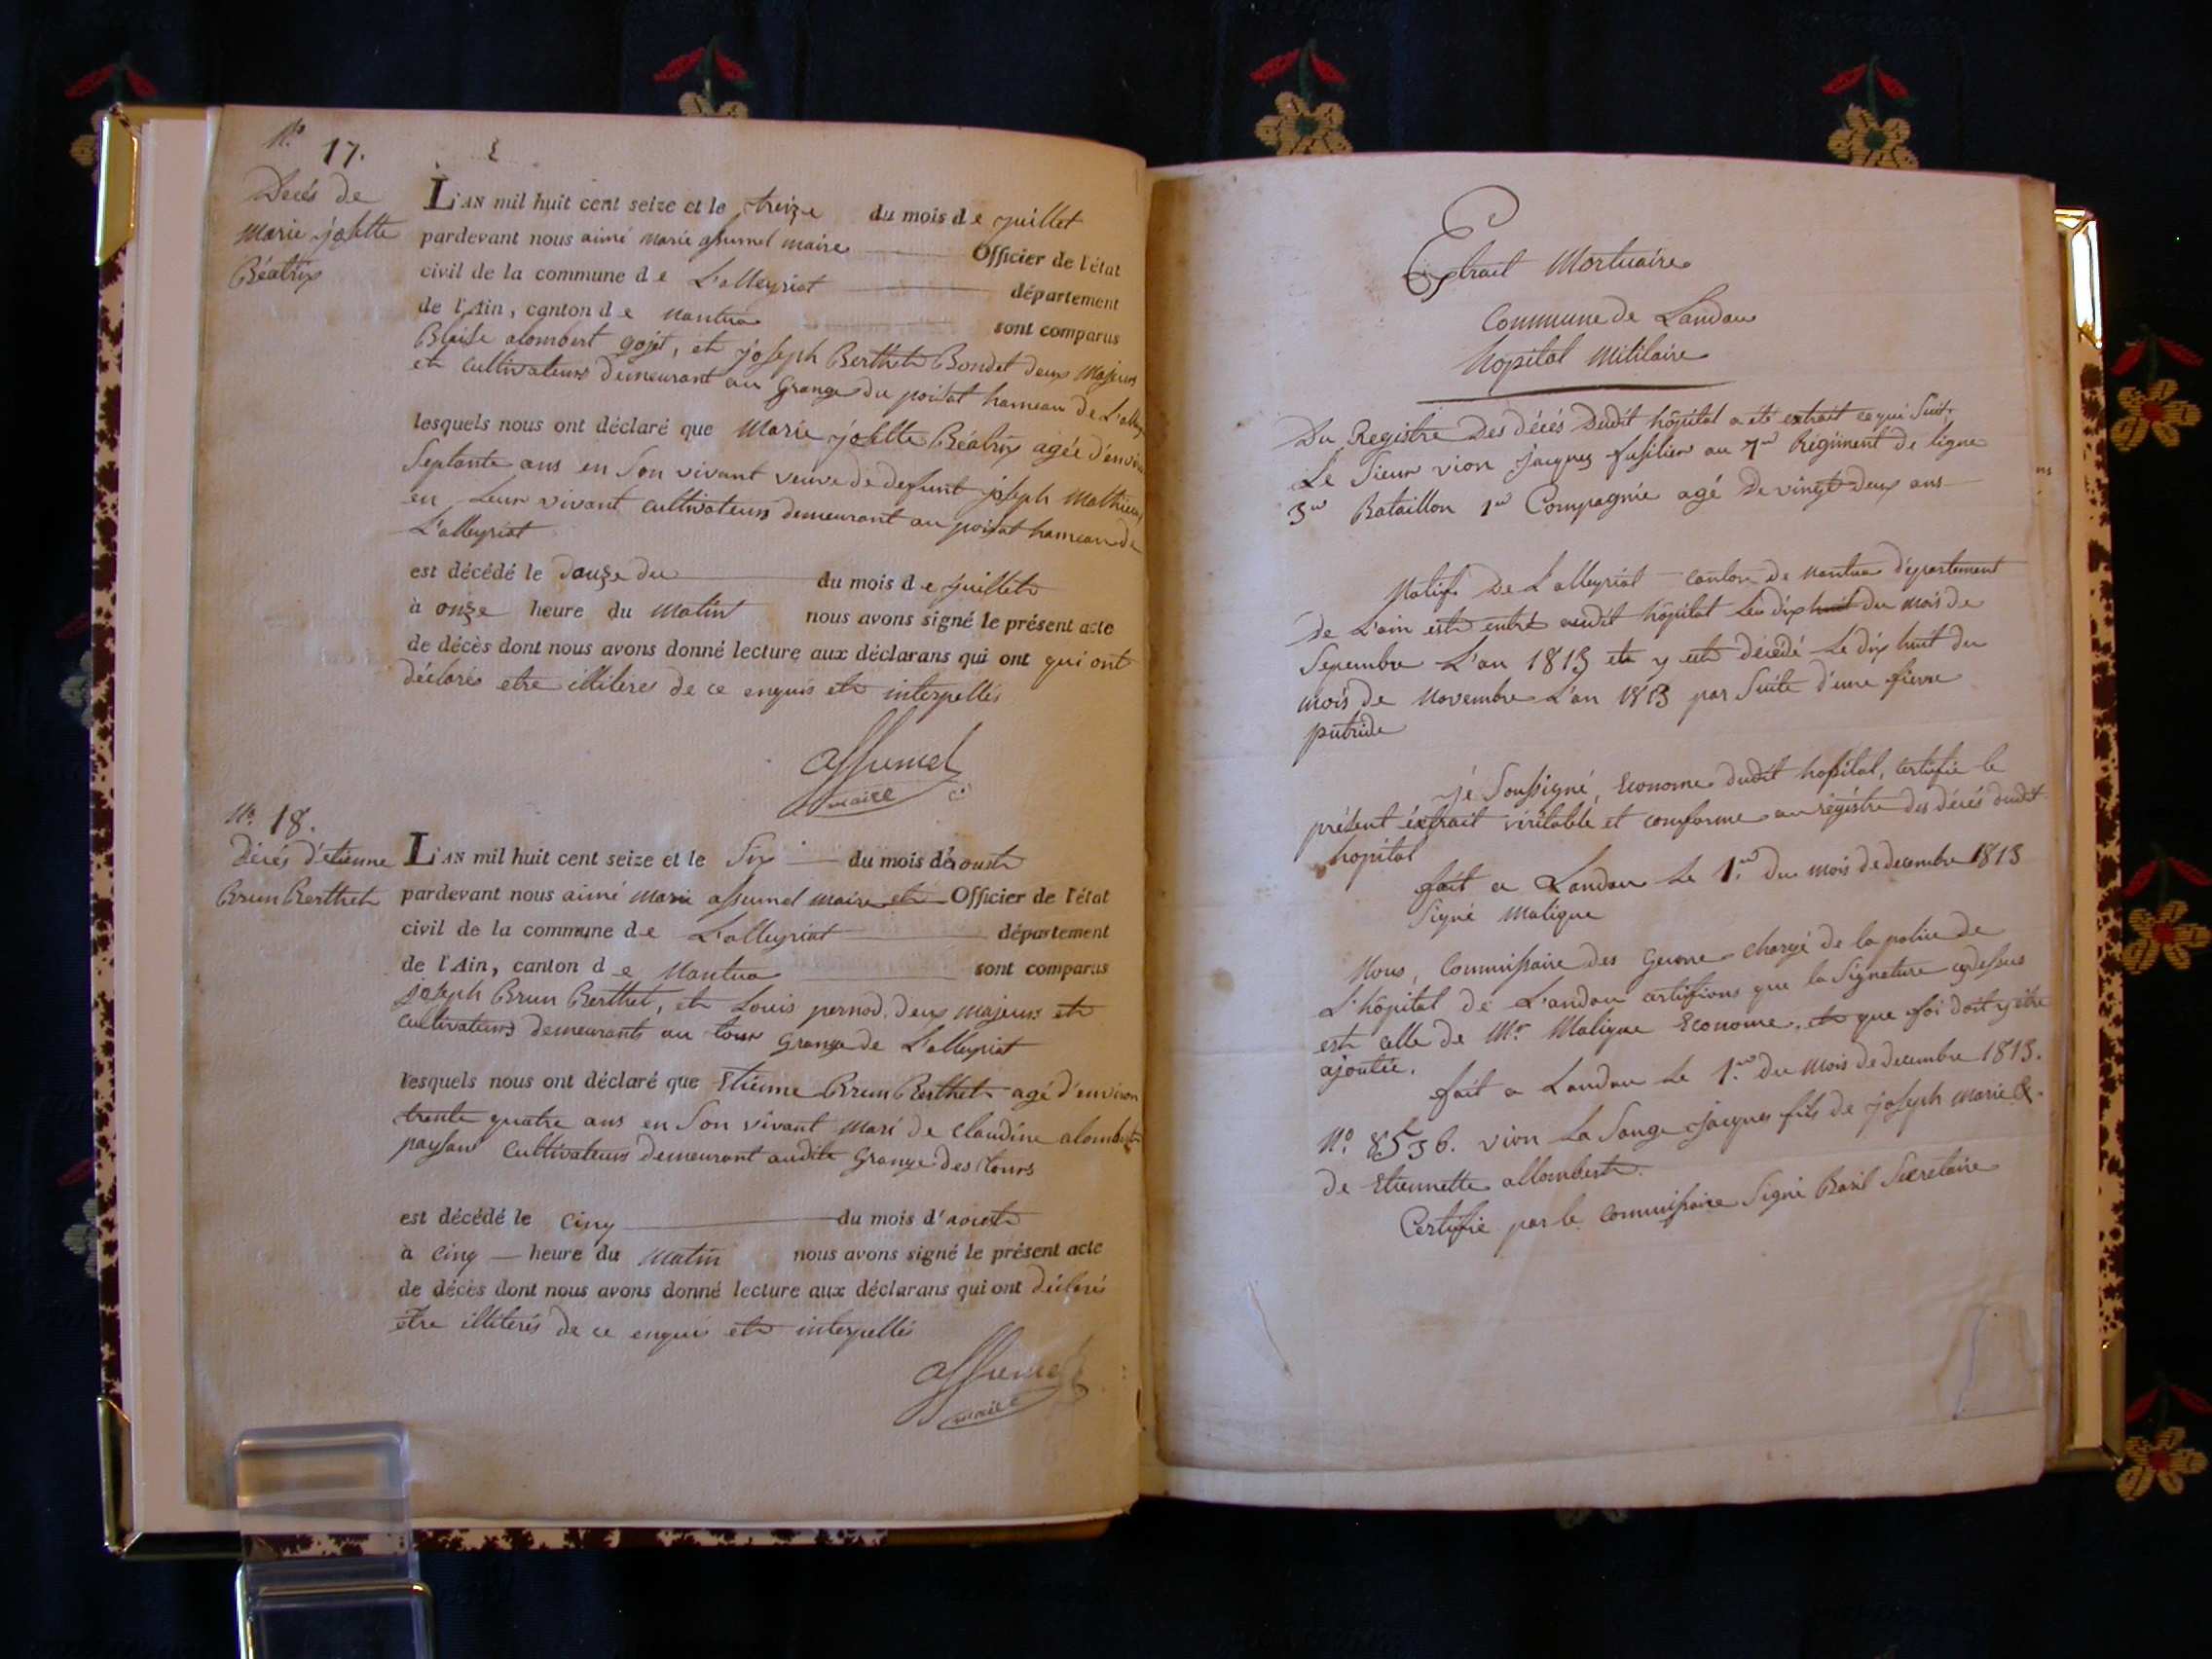 N.º 17.
Décés de
Marie josette
Béatrix
L'AN mil huit cent seize et le treize du mois de juillet
pardevant nous aimé marie assumel maire Officier de l'état
civil de la commune de L'alleyriat département
de l'Ain, canton de Nantua sont comparus
Blaise alombert gojet, et joseph Berthet Bondet deux Majeurs
et cultivateurs demeurant au Grange du poisat hameau de L'alley
lesquels nous ont déclaré que Marie josette Béatrix agée d'environ
Septante ans en Son vivant veuve de defunt joseph Mathieu
en Leur vivant cultivateurs demeurant au poisat hameau de
L'alleyriat
est décédé le douze du du mois de juillet
à onze heure du Matin nous avons signé le présent acte
de décès dont nous avons donné lecture aux déclarans qui ont qui ont
déclarés etre illitéres de ce enquis et interpellés
assumel
maire
N.º 18.
Décés d'etienne
Brun Berthet
L'AN mil huit cent seize et le Six du mois d'aoust
pardevant nous aimé Marie assumel maire et Officier de l'état
civil de la commune de L'alleyriat département
de l'Ain, canton de Nantua sont comparus
joseph Brun Berthet, et Louis pernod, deux majeurs et
cultivateurs demeurants au tour Grange de L'alleyriat
lesquels nous ont déclaré que Etienne Brun Berthet agé d'environ
trente quatre ans en Son vivant Mari de claudine alombert
paysan cultivateurs demeurant audite Grange des tours
est décédé le cinq du mois d'aoust
à cinq heure du Matin nous avons signé le présent acte
de décès dont nous avons donné lecture aux déclarans qui ont déclarés
etre illiterés de ce enquis et interpellés
assumel
maire
Extrait Mortuaire
Commune de Landau
hopital Militaire
Du Registre des décés dudit hôpital a eté extrait ce qui Suit,
Le Sieur vion jacques fusilier au 7me Régiment de ligne
3me Bataillon 1re Compagnie agé de vingt deux ans
Natif de L'alleyriat canton de Nantua département
de L'ain est entré audit hôpital Le dix huit du Mois de
Sepembre L'an 1813 et y est décédé Le dix huit du
mois de Novembre L'an 1813 par Suite d'une fievre
putride
je Soussigné, Econome dudit hopital, certifie le
présent éxtrait véritable et comforme au régistre des décés dudit
hopital
fait a Landau le 1.er du mois de decembre 1813
Signé Malique
Nous, Commissaire des Guerre chargé de la police de
L'hôpital de L'andau certifions que la Signature cydessus
est celle de Mr. Malique Econome, et que foi doit y être
ajoutée.
fait a Landau le 1.er du Mois de decembre 1813.
Nº. 8536. vion La Sange jacques fils de joseph Marie &
de Etiennette allombert
Certifié par le commissaire Signé Basil Secretaire